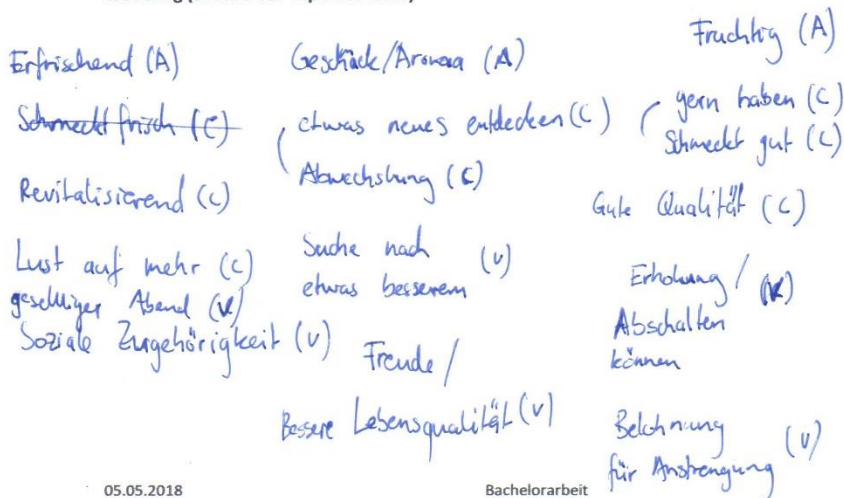 Erfrischend (A)
Schmeckt frisch (C)
Revitalisierend (C)
Lust auf mehr (C)
geselliger Abend (V)
Soziale Zugehörigkeit (V)
Geschmack/Aroma (A)
etwas neues entdecken (C)
Abwechslung (C)
Suche nach (V)
etwas besserem
Freude /
Bessere Lebensqualität (V)
Fruchtig (A)
gern haben (C)
Schmeckt gut (C)
Gute Qualität (C)
Erholung / (V)
Abschalten
können
Belohnung (V)
für Anstrengung
05.05.2018 Bachelorarbeit